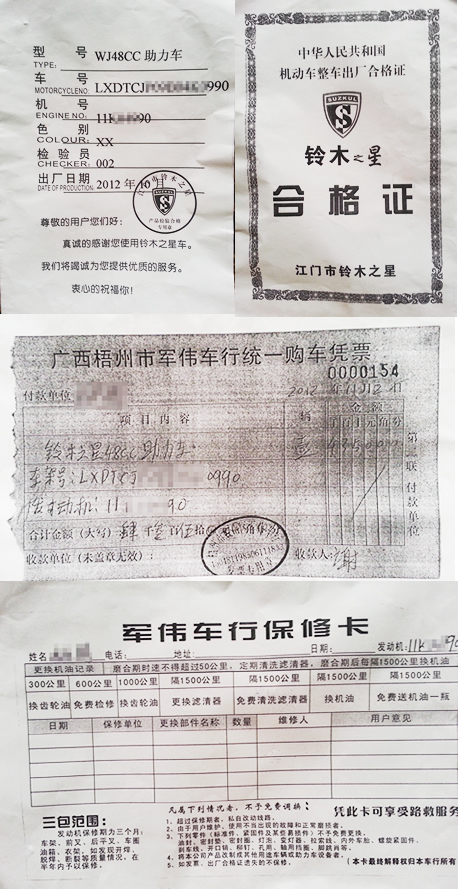 型 号 WJ48CC 助力车
TYPE:
车 号 LXDTCJ 990
MOTORCYCLENO:
机 号 11K 90
ENGINE NO:
色 别
COLOUR: XX
检 验 员
CHECKER: 002
出 厂 日 期 2012 年 10 月
DATE OF PRODUCTION:
江门市铃木之星
产品检验合格
专用章
尊敬的用户您们好:
真诚的感谢您使用铃木之星车。
我们将竭诚为您提供优质的服务。
衷心的祝福你!
中华人民共和国
机动车整车出厂合格证
SUZKUL
铃木之星
合格证
江门市铃木之星
广西梧州市军伟车行统一购车凭票
0000154
付款单位 2012 年 11月12日
项 目 内 容 金 额
铃木之星48CC助力车
车架号:LXDTCJ 0990
发动机:11 90
第二联 付款单位
合计金额(大写) 肆 仟 佰 伍 拾
收款单位(未盖章无效): 收款人:谢
发票专用章
军伟车行保修卡
姓名 电话: 地址: 日期: 发动机:11K 90
更换机油记录 磨合期时速不得超过50公里,定期清洗滤清器,磨合期后每隔1500公里换机油
300公里 600公里 1000公里 隔1500公里 隔1500公里 隔1500公里 隔1500公里
换齿轮油 免费检修 换齿轮油 更换滤清器 免费清洗滤清器 换机油 免费送机油一瓶
日期 保修单位 更换部件名称 数量 维修人 用户意见
三包范围:
发动机保修期为三个月:
车架、前叉、后平叉、车圈
油箱、衣架,如发现开焊、
脱焊、断裂等质量情况,在
半年内予以保修。
凡属下列情况者,不予免费调换:
1、超过保修期者,私自改动线路。
2、由于用户维护、使用不当出现的故障和正常磨损者。
3、下列零件(标准件、紧固件及某些易损件)不予免费更换。
油封、密封垫、密封圈、灯泡、变灯器、拉索线、内外车胎、螺旋紧固件、
刹车线、开口销、铆钉、孔用、轴用挡圈、漏胎、脚踏片等。
4、将本公司产品改制成其他用途车辆或助力车设备者。
5、如发票、出厂合格证遗失的不保修。
凭此卡可享受路救服务
(本卡最终解释权归本车行所有)